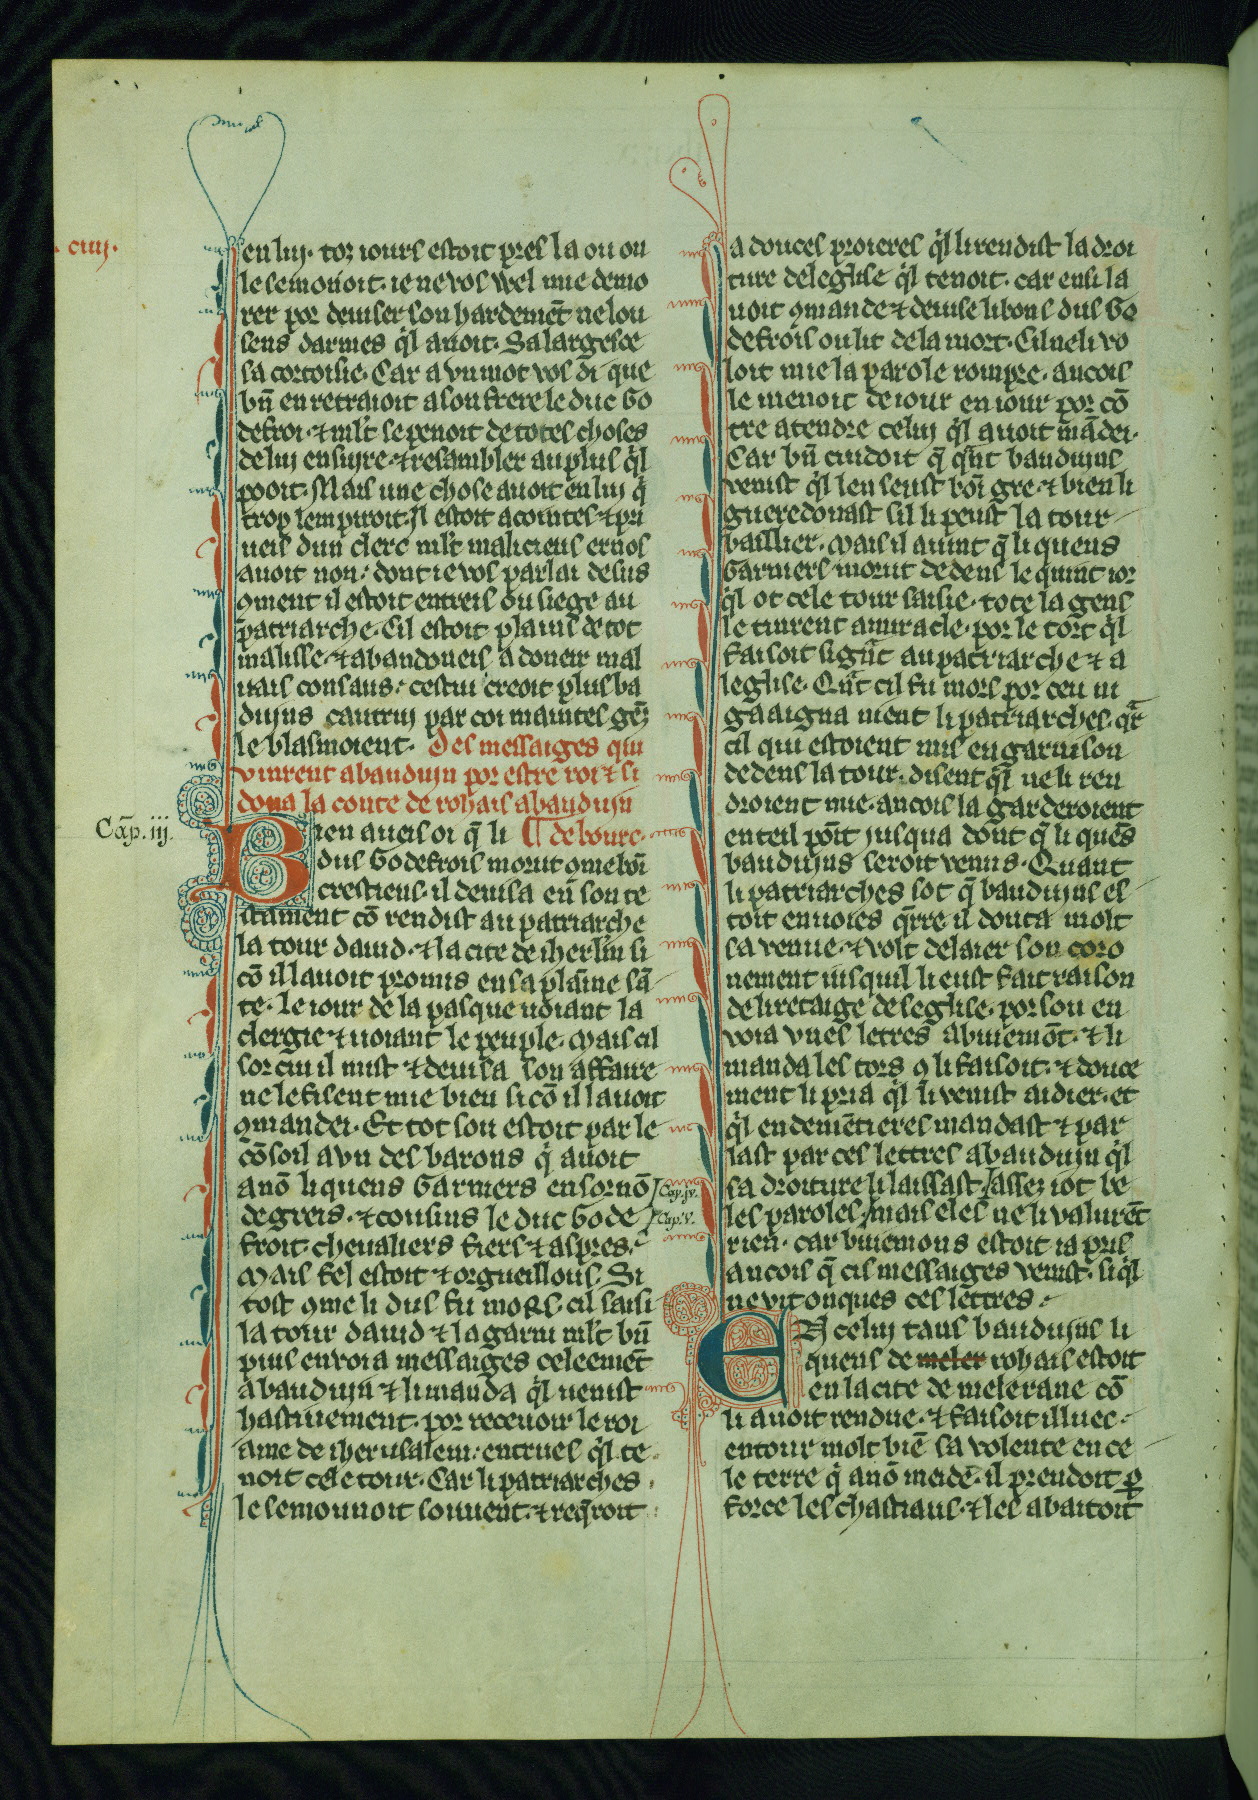 .ciiij.
en luj. toz iours estoit pres la ou on
le semonoit. ie ne vos wel mie demo
rer por deuiser son hardemēt ne lou
sens darmes q̄l auoit. Sa largesce
sa cortoisie. Car a vn mot vos di que
bn̄ en retraioit a son frere le duc Go
defroi. ⁊ ml̄t se penoit de totes choses
de luj ensujre. ⁊ resambler au plus q̄l
pooit. Mais une chose auoit en luj q̄
trop lempiroit. Jl estoit acointes ⁊ pri
ueis dun clerc ml̄t malicieus ernos
auoit non. dont ie vos parlai desus
9ment il estoit entreis ou siege au
patriarche. Cil estoit plains de tot
malisse. ⁊ abandoneis a doneir mal
uais consaus. cestui creoit plus ba
dujns cautruj par coi maintes gēz
le blasmoient. Des messaiges qui
vinrent a baudujn por estre roi ⁊ si
dona la conte de rohais a baudujn
Cap. iij.
Bien aueis oi q̄ li ¶ de bourc.
dus Godefrois morut 9me bn̄
crestiens. il deuisa en son te
stament cō rendist au patriarche
la tour dauid. ⁊ la cite de iherl̄m si
cō il lauoit promis en sa plaine sā
te. Le iour de la pasque uoiant la
clergie ⁊ uoiant le peuple. Mais cil
sor cui il mist ⁊ deuisa son affaire
ne le fisent mie bien si cō il lauoit
9mandei. Et tot son estoit par le
cōsoil a vn des barons q̄ auoit
anō li quens Garniers en sornō
de greis. ⁊ cousins le duc Gode
froit. cheualiers fiers ⁊ aspres.
Mais fel estoit ⁊ orgueillous. Si
tost 9me li dus fu mors. cil saisi
la tour dauid ⁊ la garni ml̄t bn̄
puis enuoia messaiges celeemēt
a baudujn ⁊ li manda q̄l uenist
hastiuement. por receuoir le roi
ame de iherusalem. entrues q̄l te
noit cele tour. Car li patriarches
le semonnoit souuent. ⁊ req̄roit
a douces proieres q̄l li rendist la droi
ture de leglise q̄l tenoit. car ensi la
uoit 9mande ⁊ deuise li bons dus Go
defrois ou lit de la mort. Cil ne li vo
loit mie la parole rompre. ancois
le menoit de iour en iour por cō
tre atendre celuj q̄l auoit mādei.
Car bn̄ cuidoit q̄ q̄nt baudujns
venist q̄l len seust boi gre. ⁊ bien li
gueredonast sil li peust la tour
baillier. Mais il auint q̄ li quens
Garniers morut dedens le quint ior
q̄l ot cele tour saisie. tote la gens
le tinrent a miracle. por le tort q̄l
faisoit au patriarche ⁊ a
leglise. Qnt cil fu mors por ceu ni
gaaigna nient li patriarches. qr
cil qui estoient mis en garnison
dedens la tour. disent q̄l ne li ren
droient mie. ancois la garderoient
en teil pōit jusqua dont q̄ li quēs
baudujns seroit venus. Quant
li patriarches sot q̄ baudujns es
toit enuoies q̄rre. il douta molt
sa venue. ⁊ volt delaier son coro
nement iusquil li eust fait raison
de liretaige de seglise. por son en
voia vnes letres a buiemōt. ⁊ li
manda les tors 9 li faisoit. ⁊ douce
ment li pria q̄l li venist aidier. et
q̄l endemētieres mandast ⁊ par
last par ces lettres a baudujn q̄l
Cap. jv.
sa droiture li laissast. assez iot be
Cap. V.
les paroles. mais eles ne li valurēt
rien. car buiemons estoit ia pris
ancois q̄ cis messaiges venist. si q̄l
ne vit onques ces lettres.
En celuj tans baudujns li
quens de meler rohais estoit
en la cite de melerane cō
li auoit rendue. ⁊ faisoit illuec
entour molt biē sa volente en ce
le terre q̄ anō meide. il prendoit p̱
force les chastiaus. ⁊ les abaitoit